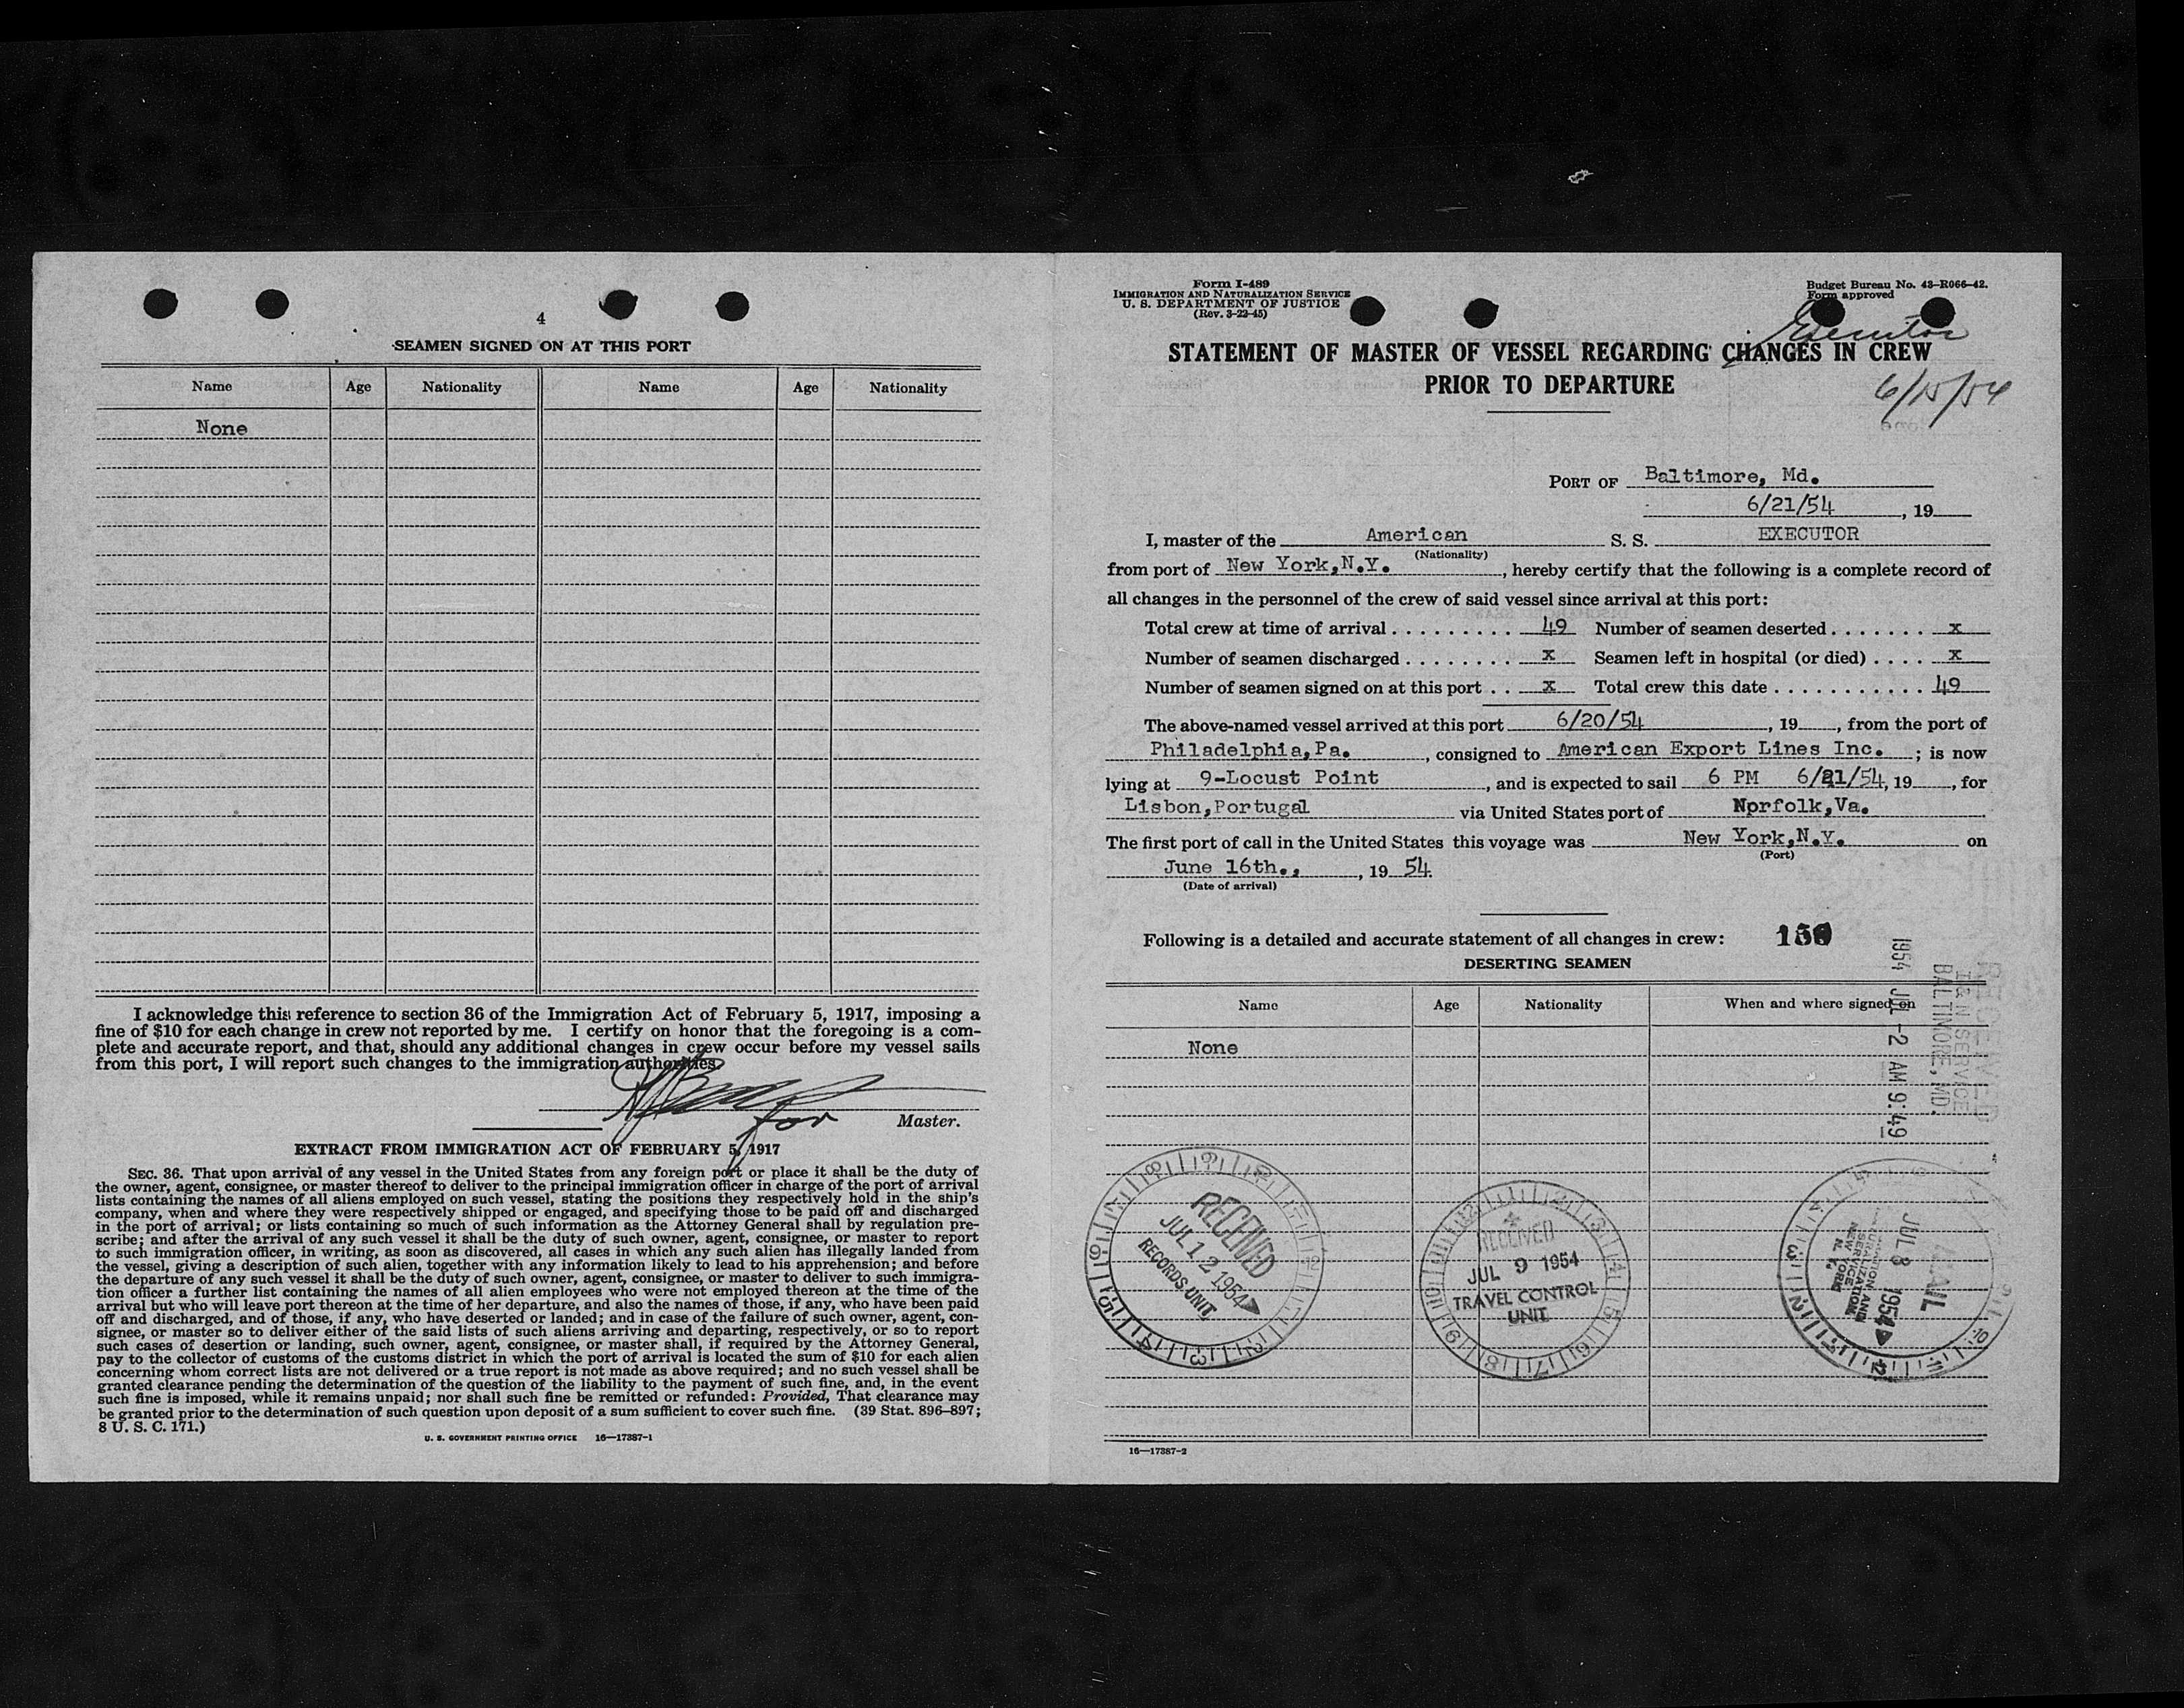 4
SEAMEN SIGNED ON AT THIS PORT
Name Age Nationality Name Age Nationality
None
I acknowledge this reference to section 36 of the Immigration Act of February 5, 1917, imposing a
fine of $10 for each change in crew not reported by me. I certify on honor that the foregoing is a com-
plete and accurate report, and that, should any additional changes in crew occur before my vessel sails
from this port, I will report such changes to the immigration authorities.
for Master.
EXTRACT FROM IMMIGRATION ACT OF FEBRUARY 5, 1917
SEC. 36. That upon arrival of any vessel in the United States from any foreign port or place it shall be the duty of
the owner, agent, consignee, or master thereof to deliver to the principal immigration officer in charge of the port of arrival
lists containing the names of all aliens employed on such vessel, stating the positions they respectively hold in the ship's
company, when and where they were respectively shipped or engaged, and specifying those to be paid off and discharged
in the port of arrival; or lists containing so much of such information as the Attorney General shall by regulation pre-
scribe; and after the arrival of any such vessel it shall be the duty of such owner, agent, consignee, or master to report
to such immigration officer, in writing, as soon as discovered, all cases in which any such alien has illegally landed from
the vessel, giving a description of such alien, together with any information likely to lead to his apprehension; and before
the departure of any such vessel it shall be the duty of such owner, agent, consignee, or master to deliver to such immigra-
tion officer a further list containing the names of all alien employees who were not employed thereon at the time of the
arrival but who will leave port thereon at the time of her departure, and also the names of those, if any, who have been paid
off and discharged, and of those, if any, who have deserted or landed; and in case of the failure of such owner, agent, con-
signee, or master so to deliver either of the said lists of such aliens arriving and departing, respectively, or so to report
such cases of desertion or landing, such owner, agent, consignee, or master shall, if required by the Attorney General,
pay to the collector of customs of the customs district in which the port of arrival is located the sum of $10 for each alien
concerning whom correct lists are not delivered or a true report is not made as above required; and no such vessel shall be
granted clearance pending the determination of the question of the liability to the payment of such fine, and, in the event
such fine is imposed, while it remains unpaid; nor shall such fine be remitted or refunded: Provided, That clearance may
be granted prior to the determination of such question upon deposit of a sum sufficient to cover such fine. (39 Stat. 896-897;
8 U. S. C. 171.)
U. S. GOVERNMENT PRINTING OFFICE 16—17387-1
Form I-489
IMMIGRATION AND NATURALIZATION SERVICE
U. S. DEPARTMENT OF JUSTICE
(Rev. 3-22-45)
Budget Bureau No. 43-R066-42.
Form approved
Executor
STATEMENT OF MASTER OF VESSEL REGARDING CHANGES IN CREW
PRIOR TO DEPARTURE
6/15/54
PORT OF Baltimore, Md.
6/21/54, 19
I, master of the American S. S. EXECUTOR
(Nationality)
from port of New York,N.Y., hereby certify that the following is a complete record of
all changes in the personnel of the crew of said vessel since arrival at this port:
Total crew at time of arrival . . . . . . . . . 49 Number of seamen deserted . . . . . . . x
Number of seamen discharged . . . . . . . . x Seamen left in hospital (or died) . . . . x
Number of seamen signed on at this port . . x Total crew this date . . . . . . . . . . . . 49
The above-named vessel arrived at this port 6/20/54, 19, from the port of
Philadelphia,Pa., consigned to American Export Lines Inc. ; is now
lying at 9-Locust Point, and is expected to sail 6 PM 6/21/54, 19, for
Lisbon,Portugal via United States port of Nprfolk,Va.
The first port of call in the United States this voyage was New York,N.Y. on
(Port)
June 16th., , 19 54.
(Date of arrival)
Following is a detailed and accurate statement of all changes in crew:
DESERTING SEAMEN
Name Age Nationality When and where signed on
None
RECEIVED
I & N SERVICE
BALTIMORE, MD.
1954 JUL -2 AM 9:49
RECEIVED
JUL 12 1954
RECORDS UNIT
RECEIVED
JUL 9 1954
TRAVEL CONTROL
UNIT
MAIL
JUL 8 1954
IMMIGRATION AND
NATURALIZATION
SERVICE
NEW YORK
N. Y.
16—17387-2